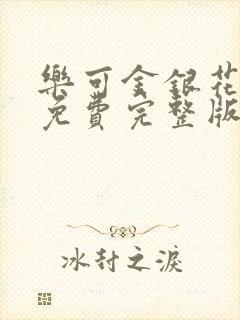 樂可金銀花
免費完整版
冰封之淚